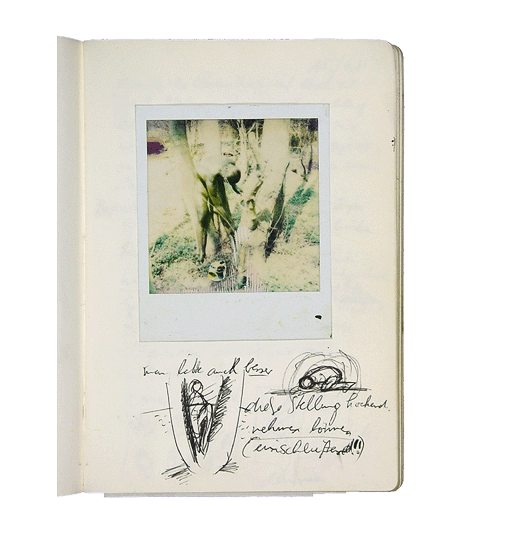 man hätte auch besser
diese Stellung hockend
nehmen können
(einschließend!!)